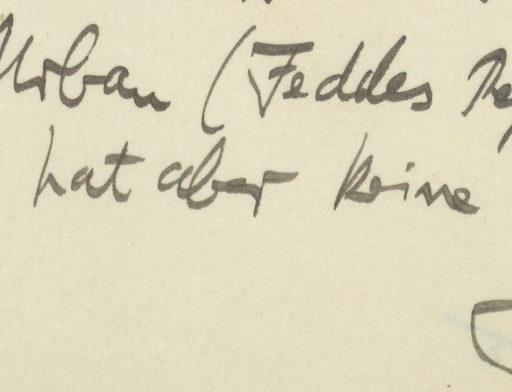 Urban (Feddes Rep
hat aber keine